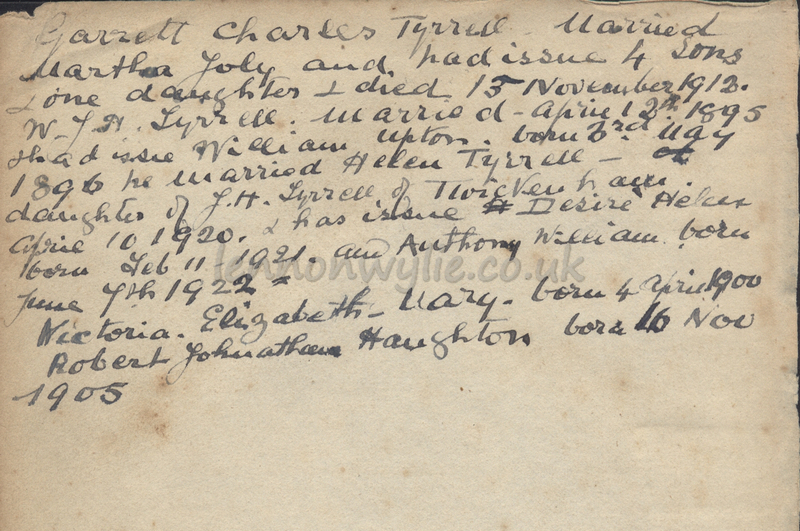 Garrett Charles Tyrrell Married
Martha Joly and had issue 4 sons
& one daughter & died 15 November 1912.
W. J. H. Tyrrell. Married - April 12th 1895
& had issue William Upton. born 3rd. May
1896 he Married Helen Tyrrell -
daughter of J. H. Tyrrell of Twickenham.
& has issue Desire Helen
April 10 1920.
born Feb 11 1921. an Anthony William born
June 7th 1922
Victoria. Elizabeth - Mary - born 4 April 1900
Robert Johnathan Haughton born 16 Nov
1905
lennonwylie.co.uk